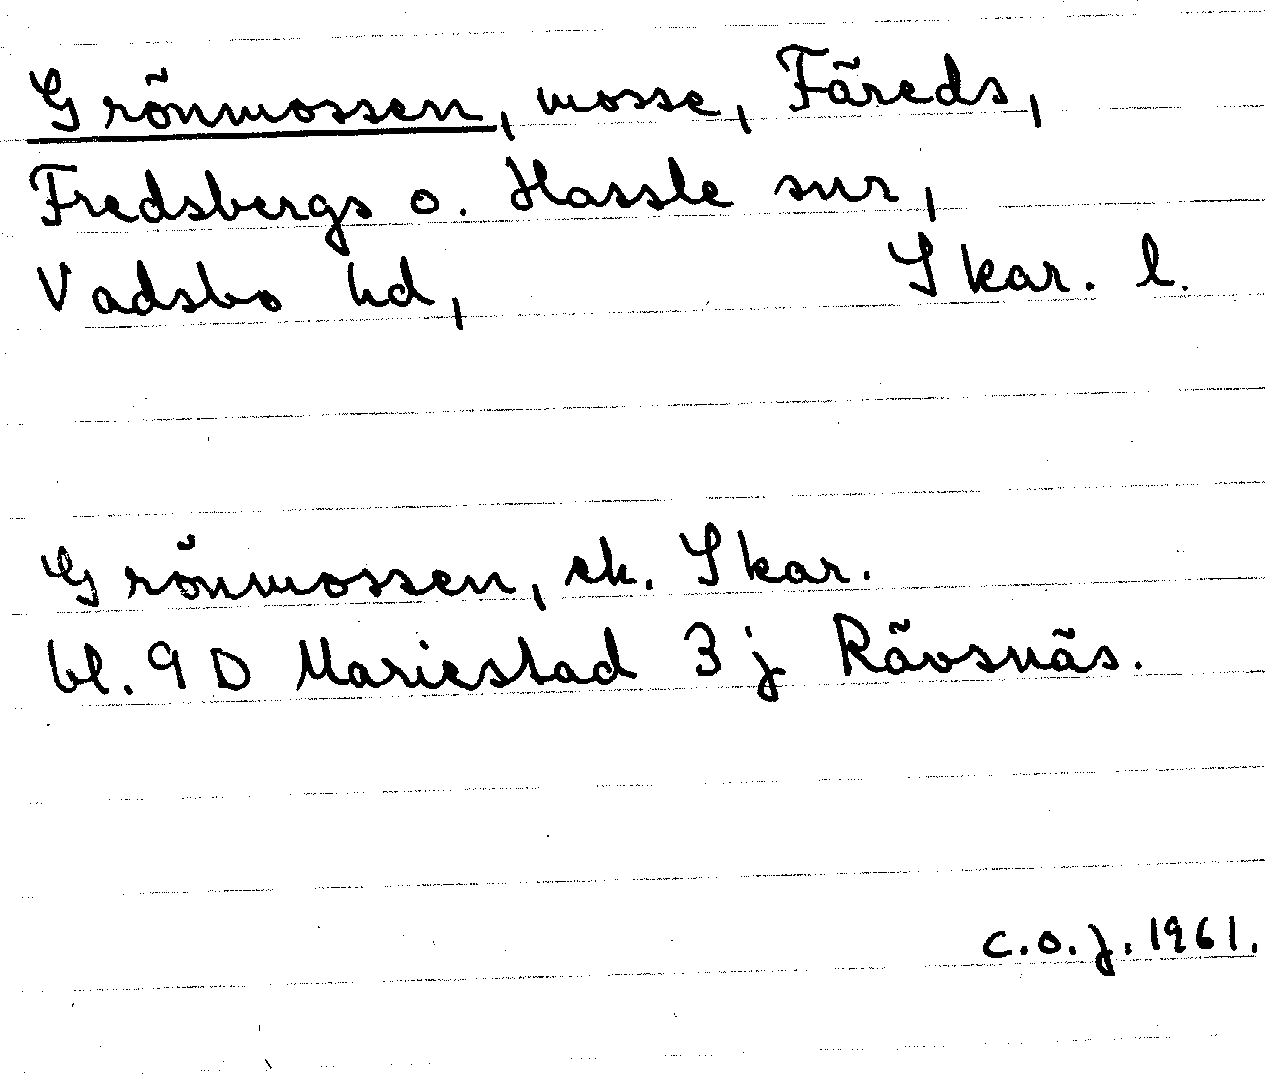 Grönmossen, mosse, Färeds,
Fredsbergs o. Hassle snr,
Vadsbo hd, Skar. l.
Grönmossen, ek. Skar.
bl. 9 D Mariestad 3 j Rävsnäs.
C.O.J. 1961.